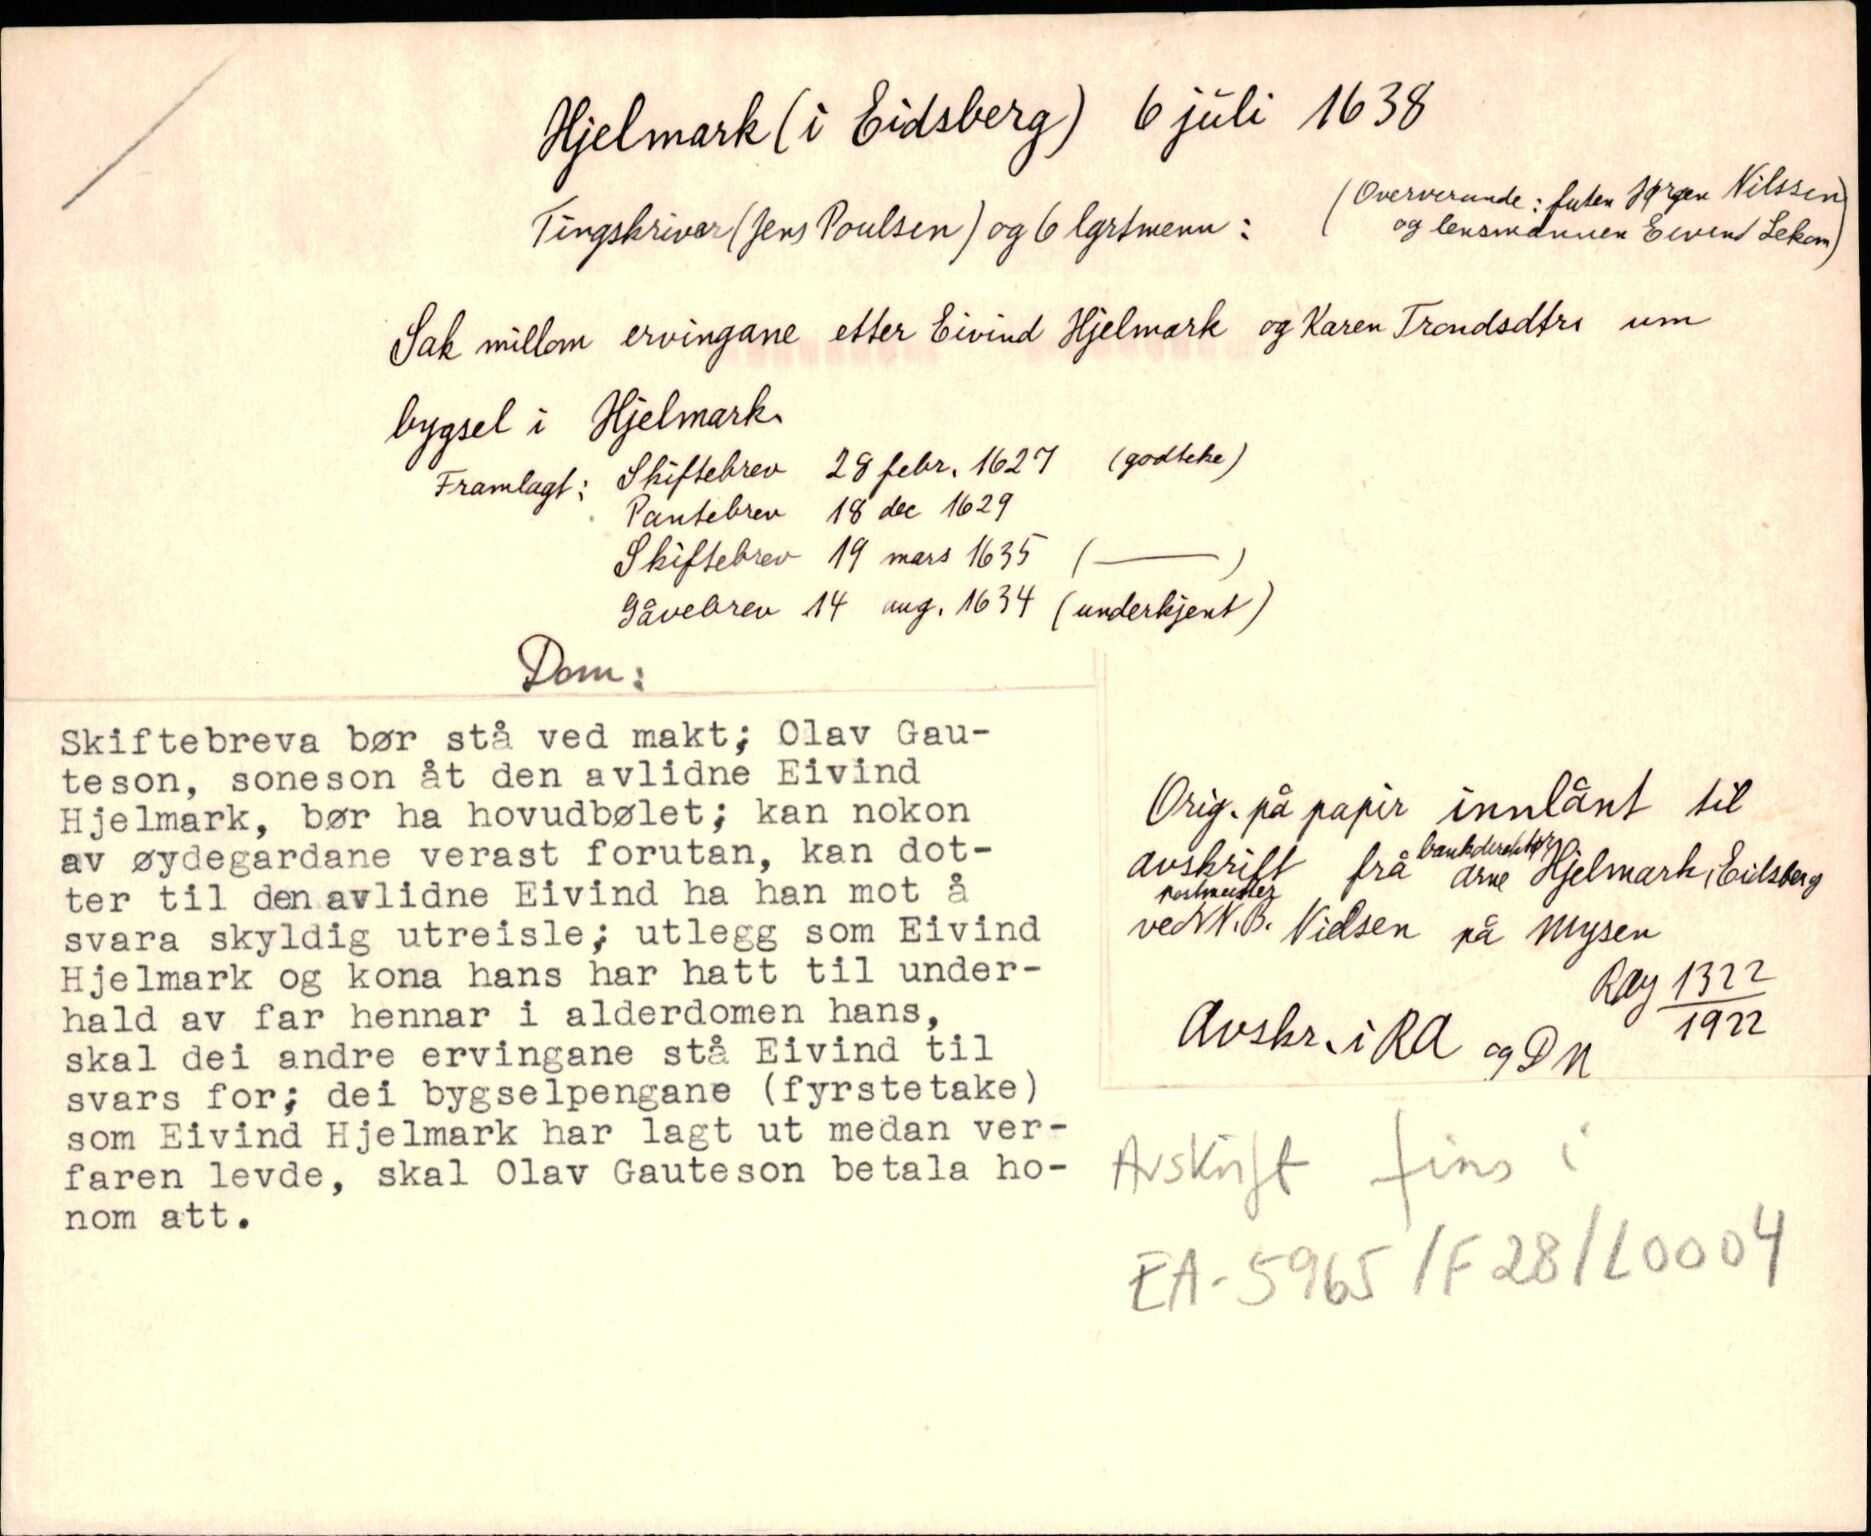 Hjelmark (i Eidsberg) 6 juli 1638
(Oververande: futen Jørgen Nilssen
og lensmannen Eivind Lekom)
Tingskriver (Jens Poulsen) og 6 lgrtmenn:
Sak millom ervingane etter Eivind Hjelmark og Karen Trondsdtri um
bygsel i Hjelmark.
Framlagt: Skiftebrev 28 febr. 1627 (godteke)
Pantebrev 18 dec 1629
Skiftebrev 19 mars 1635 (———)
Gåvebrev 14 aug. 1634 (underkjent)
Dom:
Skiftebreva bør stå ved makt; Olav Gau-
teson, soneson åt den avlidne Eivind
Hjelmark, bør ha hovudbølet; kan nokon
av øydegardane verast forutan, kan dot-
ter til den avlidne Eivind ha han mot å
svara skyldig utreisle; utlegg som Eivind
Hjelmark og kona hans har hatt til under-
hald av far hennar i alderdomen hans,
skal dei andre ervingane stå Eivind til
svars for; dei bygselpengane (fyrstetake)
som Eivind Hjelmark har lagt ut medan ver-
faren levde, skal Olav Gauteson betala ho-
nom att.
Orig. på papir innlånt til
avskrift frå bankdirektør Arne Hjelmark, Eidsberg
ved postmeister N. B. Nielsen på Mysen
RAJ 1322
1922
Avskr. i RA og DN
Avskrift fins i
EA-5965/F28/L0004